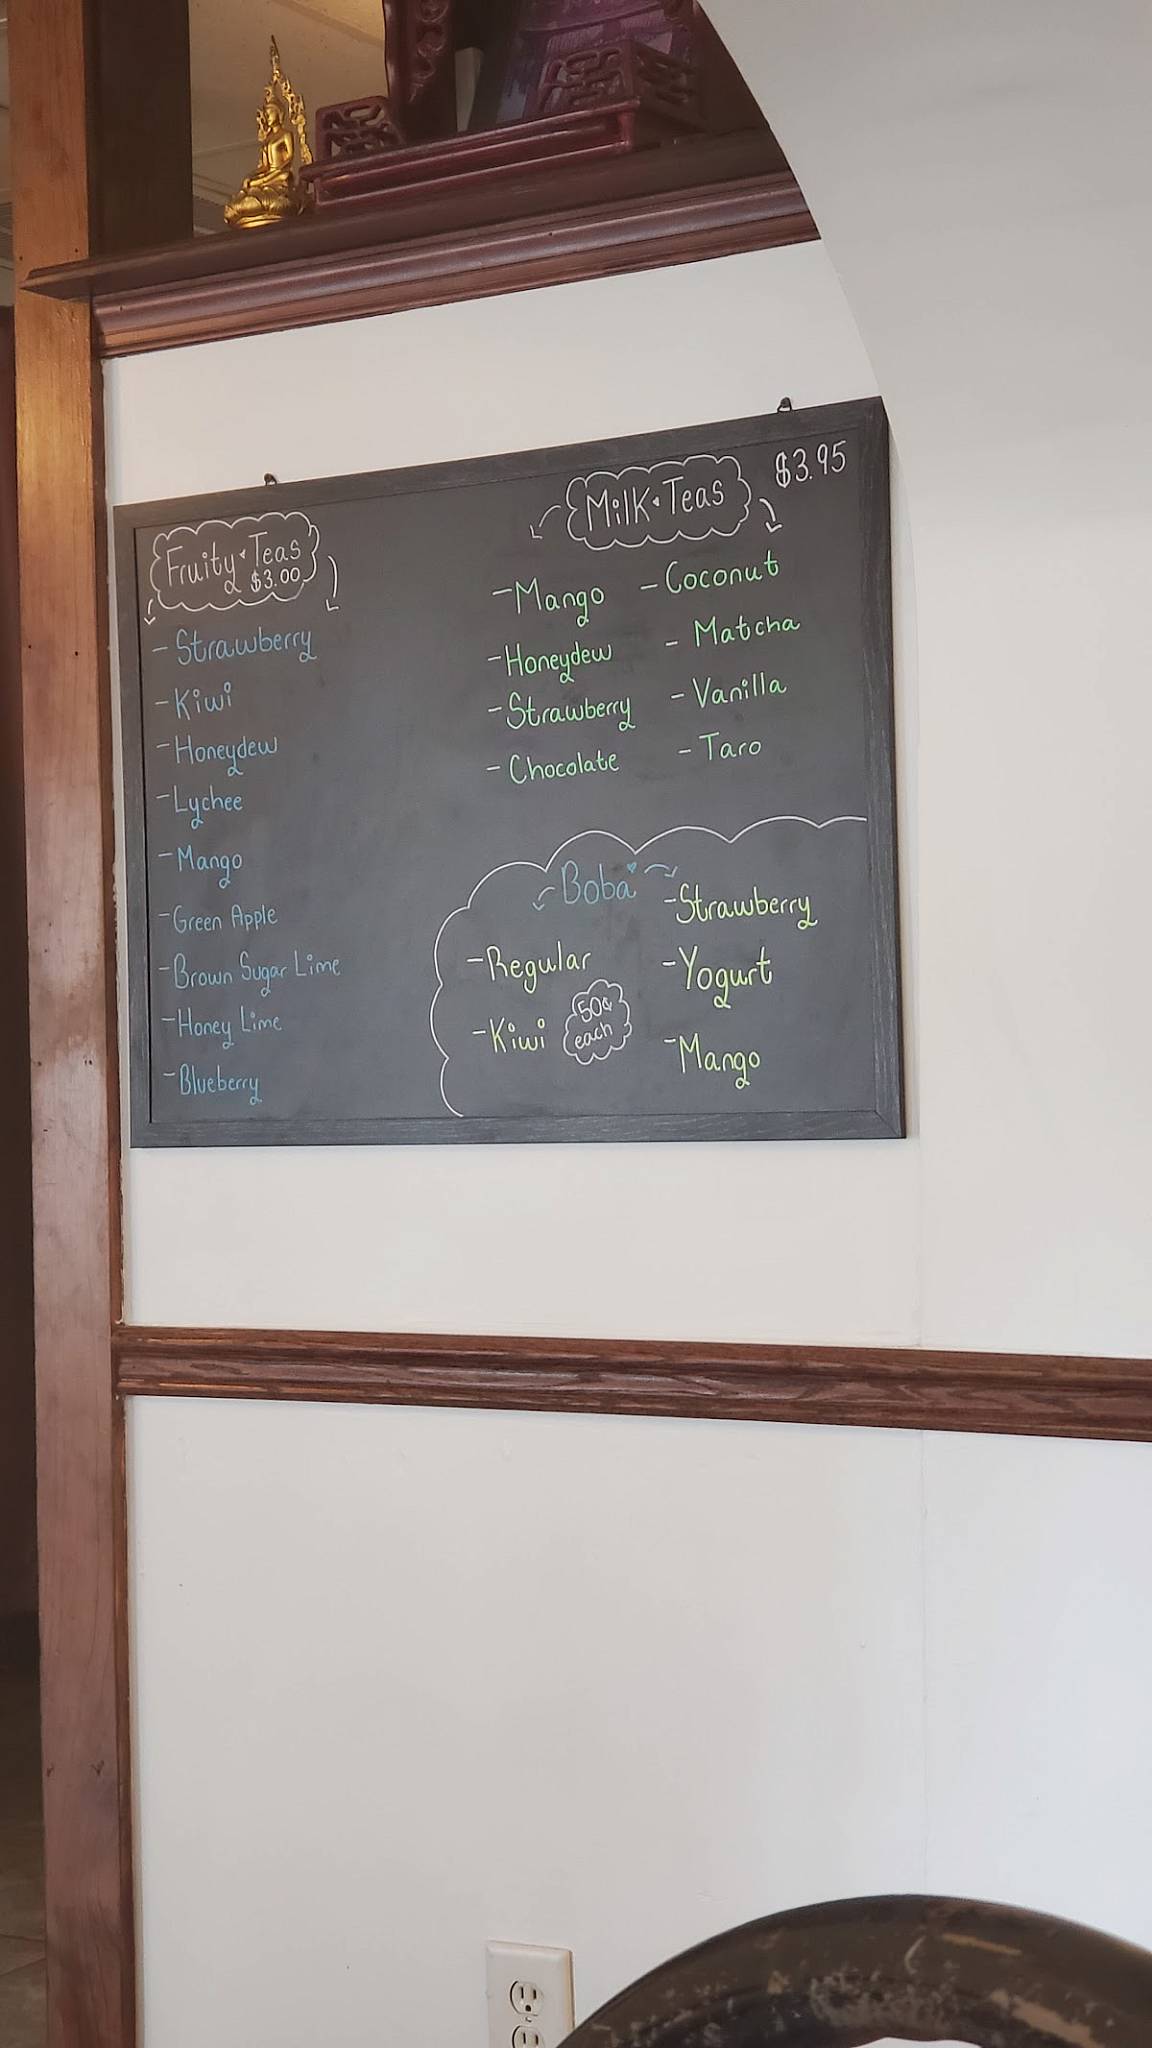 Fruity Teas
$3.00
- Strawberry
- Kiwi
- Honeydew
- Lychee
- Mango
- Green Apple
- Brown Sugar Lime
- Honey Lime
- Blueberry
Milk Teas
$3.95
- Mango
- Honeydew
- Strawberry
- Chocolate
- Coconut
- Matcha
- Vanilla
- Taro
Boba
- Regular
- Kiwi
50¢
each
- Strawberry
- Yogurt
- Mango